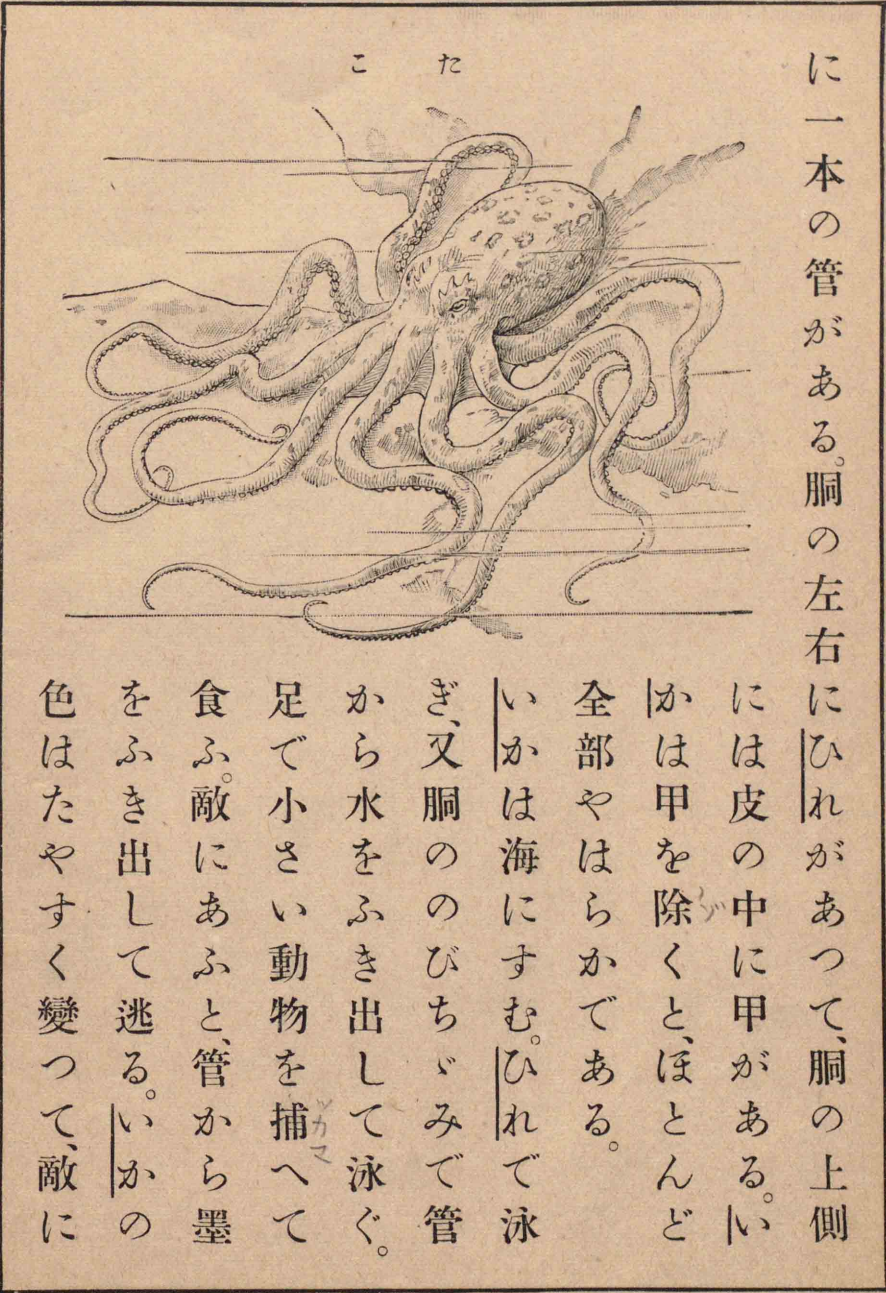 に一本の管がある。胴の左右にひれがあつて、胴の上側
には皮の中に甲がある。い
かは甲を除くと、ほとんど
全部やはらかである。
いかは海にすむ。ひれで泳
ぎ、又胴ののびちゞみで管
から水をふき出して泳ぐ。
足で小さい動物を捕へて
食ふ。敵にあふと、管から墨
をふき出して逃る。いかの
色はたやすく變つて、敵に
たこ
ノゾ
ツカマ